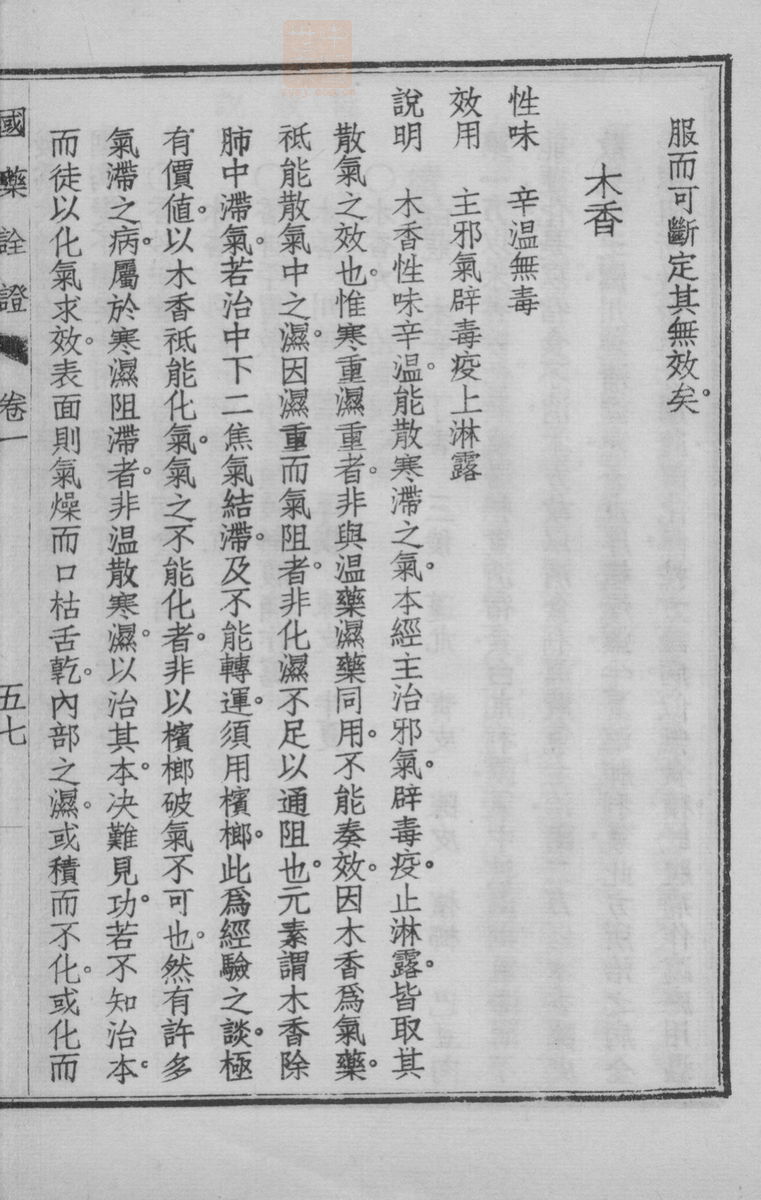 服而可斷定其無效矣。
木香
性味　辛温無毒
效用　主邪氣辟毒疫上淋露
說明　木香性味辛温。能散寒滯之氣。本經主治邪氣。辟毒疫。止淋露。皆取其
散氣之效也。惟寒重濕重者。非與温藥濕藥同用。不能奏效。因木香爲氣藥。
祗能散氣中之濕。因濕重而氣阻者。非化濕不足以通阻也。元素謂木香除
肺中滯氣。若治中下二焦氣結滯。及不能轉運。須用檳榔。此爲經驗之談。極
有價値。以木香祗能化氣。氣之不能化者。非以檳榔破氣不可也。然有許多
氣滯之病。屬於寒濕阻滯者。非温散寒濕。以治其本。决難見功。若不知治本。
而徒以化氣求效。表面則氣燥而口枯舌乾。內部之濕。或積而不化。或化而
國藥詮證　卷一　五七